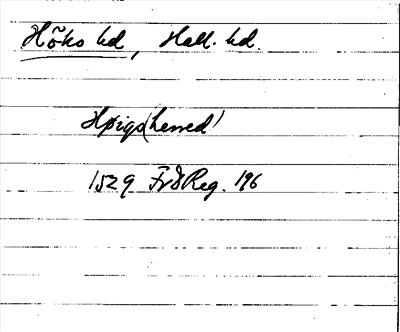 Höks hd, Hall. hd.
Høigs(herred)
1529 Fr I Reg. 196